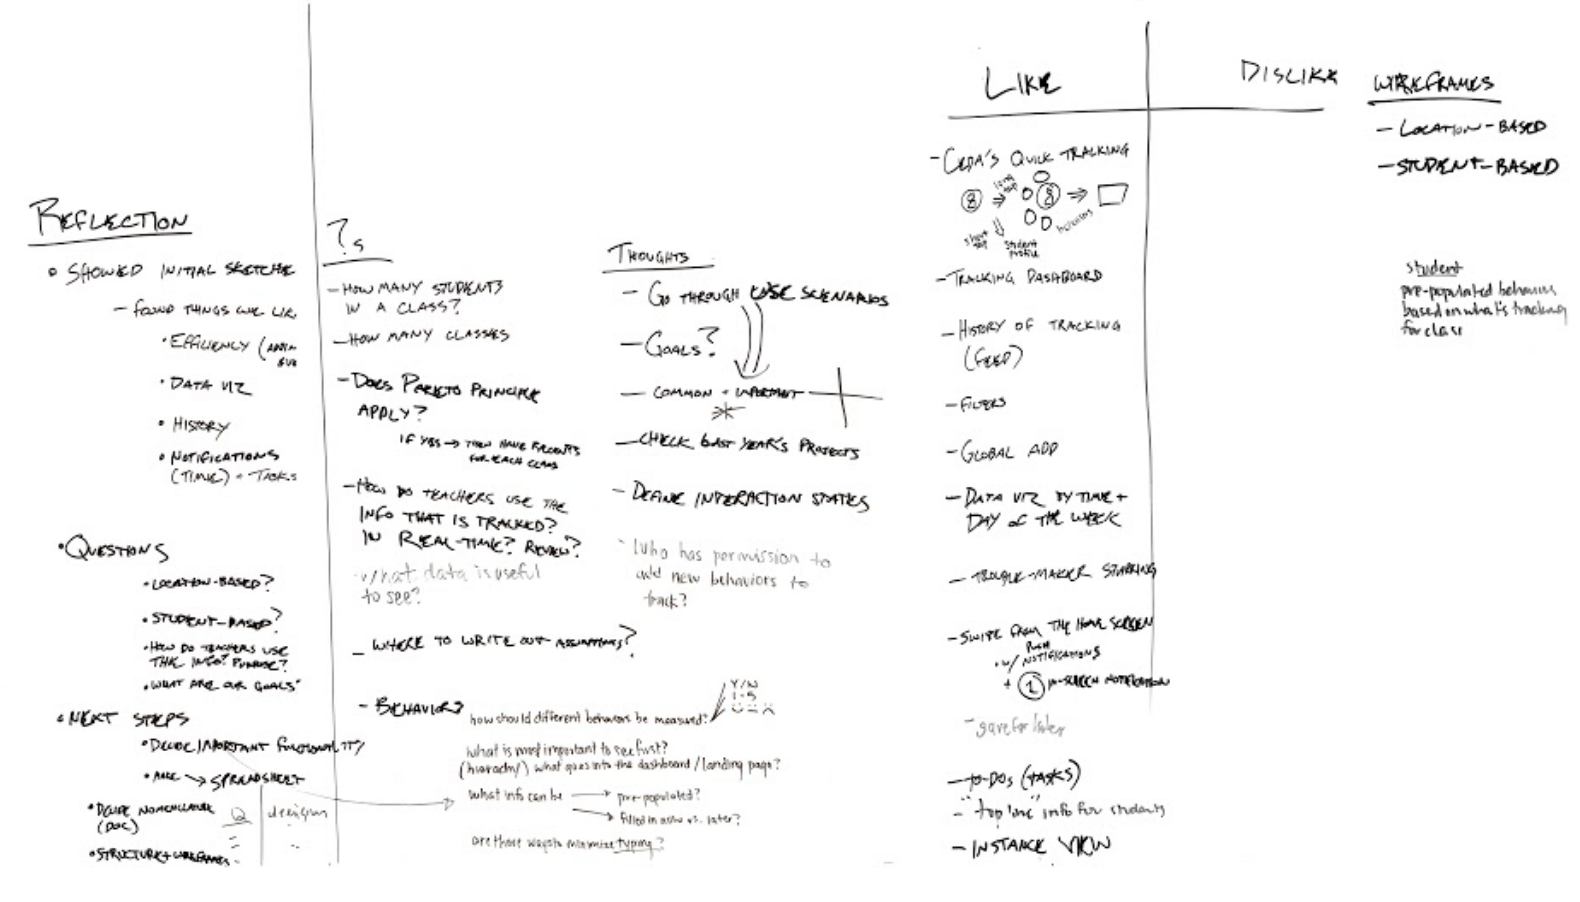 REFLECTION
• SHOWED INITIAL SKETCHE
— FOUND THINGS WE LIK
• EFFICIENCY (
• DATA VIZ
• HISTORY
• NOTIFICATIONS
(TIME) + TASKS
• QUESTIONS
• LOCATION-BASED?
• STUDENT-BASED?
• HOW DO TEACHERS USE
THE INFO? PURPOSE?
• WHAT ARE OUR GOALS?
• NEXT STEPS
• DECIDE IMPORTANT FUNCTIONALITY
• → SPREADSHEET
• DECIDE NOMENCLATURE
(DOC)
Q decision
• STRUCTURE + WIREFRAMES
?s
— HOW MANY STUDENTS
IN A CLASS?
— HOW MANY CLASSES
— DOES PARETO PRINCIPLE
APPLY?
IF YES → THEN HAVE
FOR EACH CLASS
— HOW DO TEACHERS USE THE
INFO THAT IS TRACKED?
IN REAL-TIME? REVIEW?
- what data is useful
to see?
— WHERE TO WRITE OUT ASSUMPTIONS?
— BEHAVIORS
how should different behaviors be measured?
Y/N
1-5
what is most important to see first?
(hierarchy) what goes into the dashboard/landing page?
what info can be → pre-populated?
→ filled in now vs. later?
are there ways to minimize typing?
THOUGHTS
— GO THROUGH USE SCENARIOS
— GOALS?
— COMMON + IMPORTANT
— CHECK LAST YEAR'S PROJECTS
— DEFINE INTERACTION STATES
- Who has permission to
add new behaviors to
track?
LIKE
— QUICK TRACKING
long
tap
short
tap
student
profile
behaviors
— TRACKING DASHBOARD
— HISTORY OF TRACKING
(FEED)
— FILTERS
— GLOBAL ADD
— DATA VIZ BY TIME +
DAY OF THE WEEK
— TROUBLE-MAKER STARRING
— SWIPE FROM THE HOME SCREEN
• w/ PUSH NOTIFICATIONS
+ 1 IN-SCREEN NOTIFICATION
- save for later
— TO-DOS (TASKS)
- "top line" info for students
— INSTANCE VIEW
DISLIKE
WIREFRAMES
— LOCATION-BASED
— STUDENT-BASED
student
pre-populated behaviors
based on what's tracking
for class